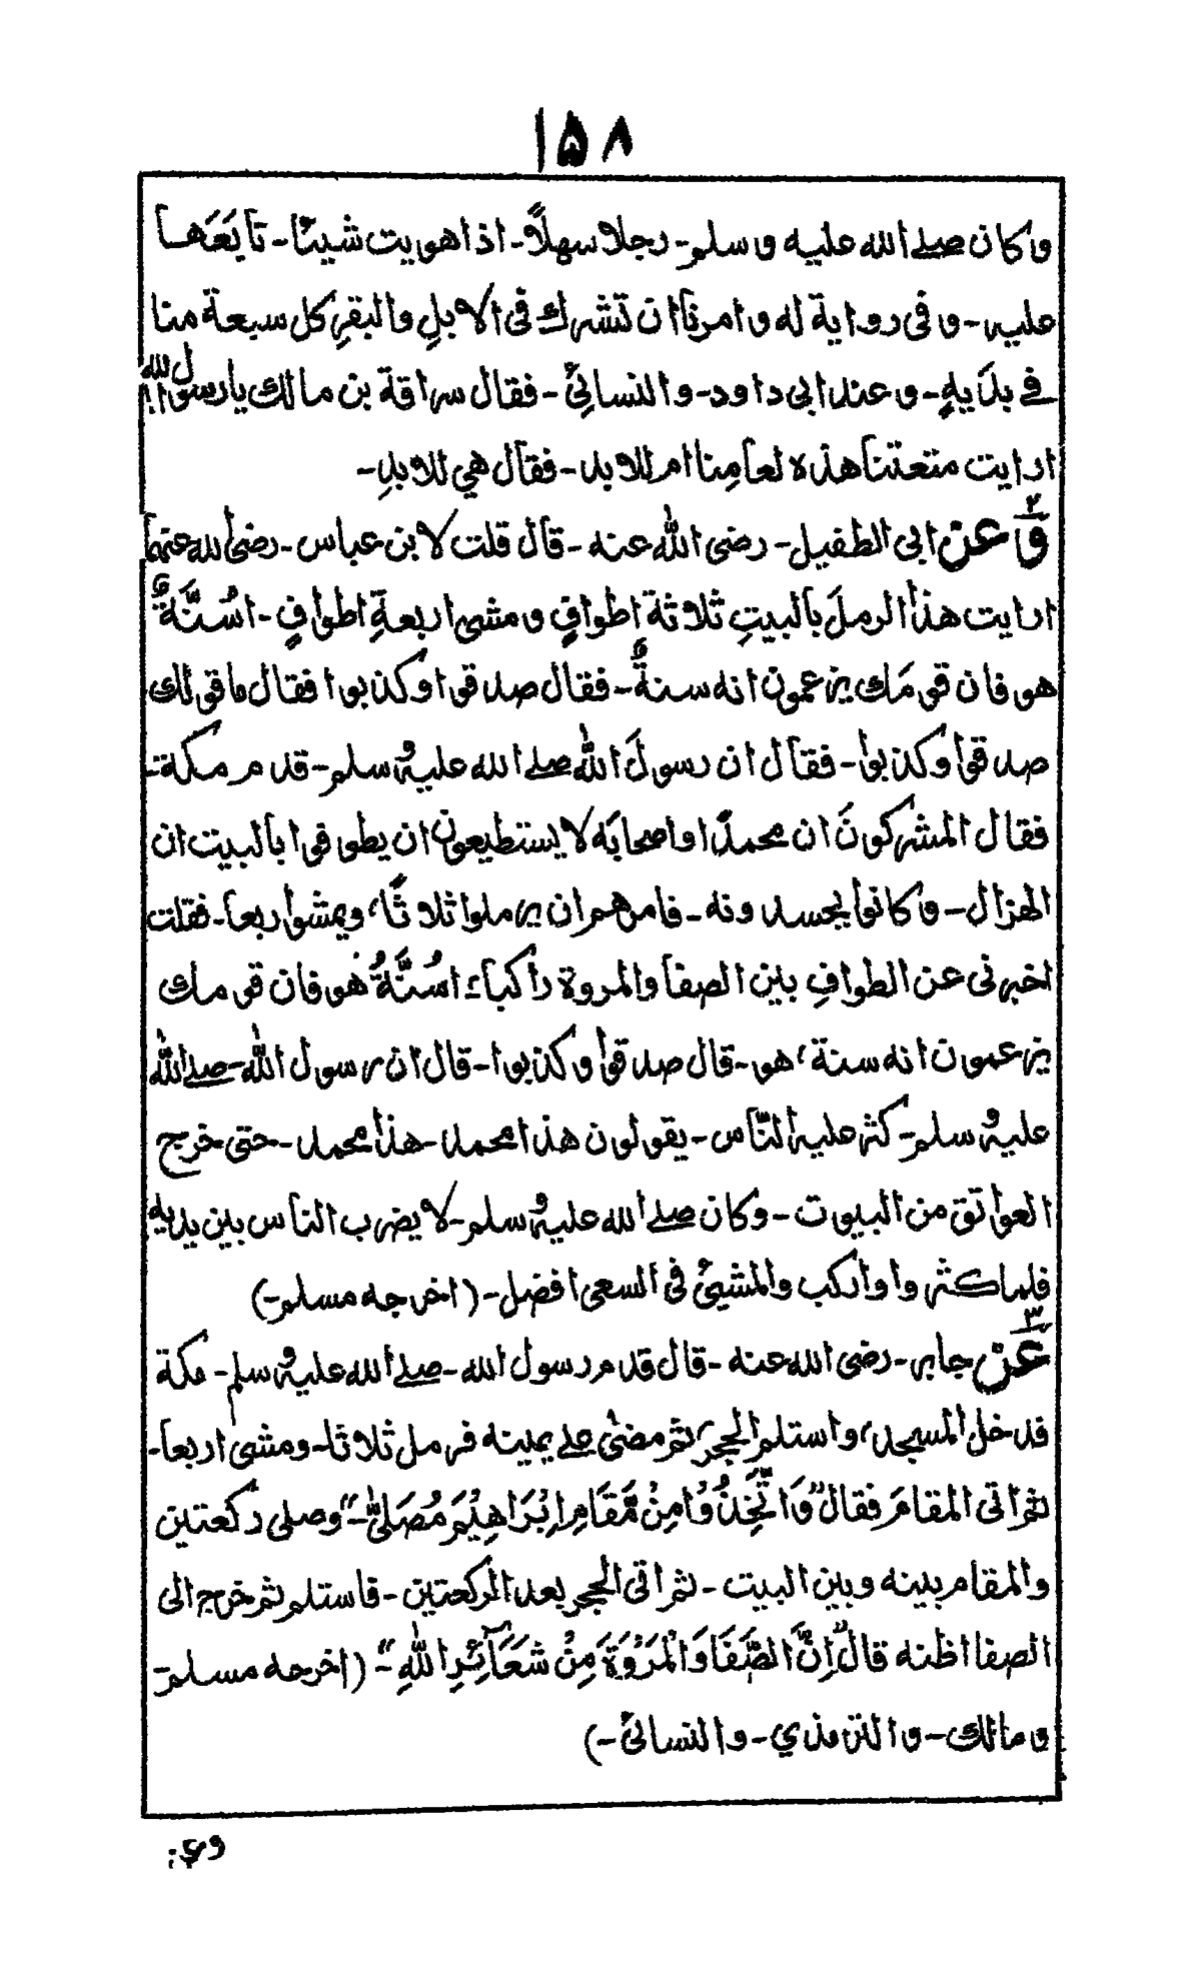 ۱۵۸
وكان صلے الله عليه وسلم- رجلا سهلًا- اذا هويت شيئا- تابَعَها
عليه- وفى رواية له وامرنا ان نشرك فى الابلِ والبقرِ كل سبعة منا
فے بدَنِةٍ- وعند ابى داود- والنسائى- فقال سراقة بن مالك يا رسول الله
ارايت متعتنا هذه لعامِنا ام للابد- فقال هي للابدِ-
۲ وَعن ابى الطفيل- رضى الله عنه- قال قلت لابن عباس- رضى الله عنهما
ارايت هذا الرملَ بالبيتِ ثلاثة اطوافٍ ومشى اربعةِ اطوافٍ- اسُنَّةٌ
هو فان قومَك يزعمون انه سنةٌ- فقال صدقوا وكذبوا فقال ما قولك
صدقوا وكذبوا- فقال ان رسولَ الله صلے الله عليه وسلم- قدم مكة-
فقال المشركونَ ان محمدًا واصحابَه لا يستطيعون ان يطوفوا بالبيت ان
الهزال- وكانوا يحسدونه- فامرهم ان يرملوا ثلاثًا، ويمشوا ربعا- فقلت
اخبرنى عن الطوافِ بين الصفا والمروة راكباء اسُنَّةُ هو فان قومك
يزعمون انه سنة، هو- قال صدقوا وكذبوا- قال ان رسول الله- صلے الله
عليه وسلم- كثر عليه النّاس- يقولون هذا محمد- هذا محمد- حتى خرج
العواتق من البيوت- وكان صلے الله عليه وسلم- لا يضرب الناس بين يديه
فلما كثروا وا ركب والمشيئ فى السعى افضل- (اخرجه مسلم-)
۳ عَن جابر- رضى الله عنه- قال قدم رسول الله- صلے الله عليه وسلم- مكة
فدخل المسجد، واستلم الحجر، ثم مضىٰ علے يمينه فرمل ثلاثا- ومشى اربعا-
ثم اتى المقامَ فقال "وَاتَّخِذُوْا مِنْ مَّقَامِ اِبْرَاهِيْمَ مُصَلًّى-" وصلى ركعتين
والمقام بينه وبين البيت- ثم اتى الحجر بعد الركعتين- فاستلم ثم خرج الى
الصفا اظنه قال "اِنَّ الصَّفَا وَالْمَرْوَةَ مِنْ شَعَآئِرِ اللهِ-" (اخرجه مسلم-
ومالك- والترمذي- والنسائى-)